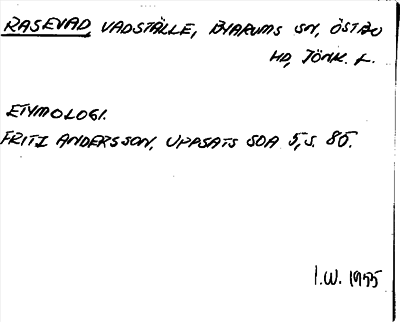 RASEVAD, VADSTÄLLE, BYARUMS SN, ÖSTBO
HD, JÖNK. L.
ETYMOLOGI.
FRITZ ANDERSSON, UPPSATS SOA 5, S. 85.
I.W. 1955